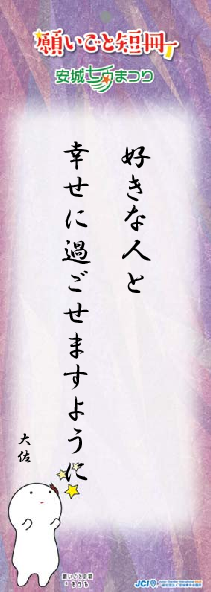 願いごと短冊
安城七夕まつり
好きな人と
幸せに過ごせますように
大佐